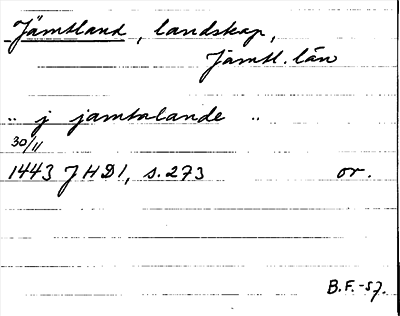 Jämtland, landskap,
Jämtl. län
.. j jamtalande ..
30/11
1443 JHD1, s. 273 or.
B.F.-57.